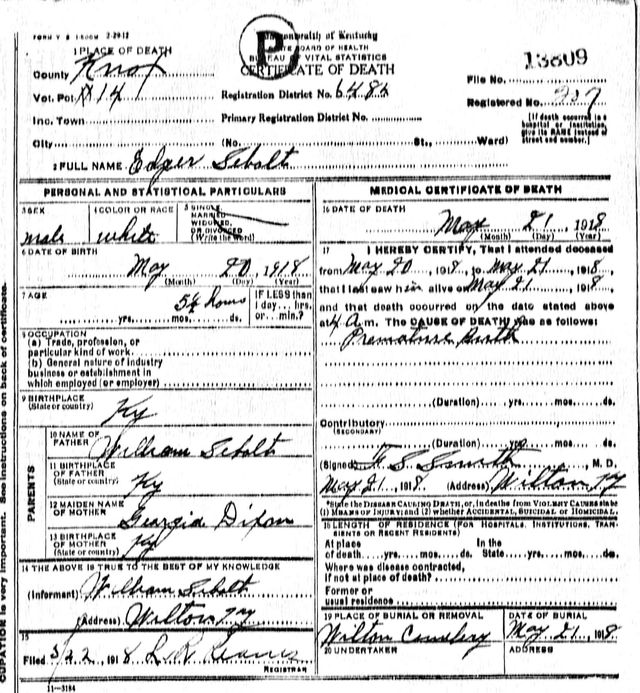 FORM V. S. 2-29-12
Commonwealth of Kentucky
STATE BOARD OF HEALTH
BUREAU OF VITAL STATISTICS
CERTIFICATE OF DEATH
P
13809
1 PLACE OF DEATH
County Knox
Vot. Pct. #14
Inc. Town
City
Registration District No. 6482
Primary Registration District No.
(No. St., Ward)
File No.
Registered No. 207
[If death occurred in a hospital or institution, give its NAME instead of street and number.]
2 FULL NAME Edger Sebolt
PERSONAL AND STATISTICAL PARTICULARS
3 SEX
male
4 COLOR OR RACE
white
5 SINGLE,
MARRIED
WIDOWED,
OR DIVORCED
(Write the word)
6 DATE OF BIRTH
May 20, 1918
(Month) (Day) (Year)
7 AGE
5½ hours
yrs. mos. ds.
IF LESS than
1 day... hrs.
or... min.?
8 OCCUPATION
(a) Trade, profession, or
particular kind of work
(b) General nature of industry
business or establishment in
which employed (or employer)
9 BIRTHPLACE
(State or country)
Ky
PARENTS
10 NAME OF
FATHER William Sebolt
11 BIRTHPLACE
OF FATHER
(State or country) Ky
12 MAIDEN NAME
OF MOTHER Georgia Dixon
13 BIRTHPLACE
OF MOTHER
(State or country) Ky
14 THE ABOVE IS TRUE TO THE BEST OF MY KNOWLEDGE
(Informant) William Sebolt
(Address) Wilton Ky
15
Filed 5/22 1918
REGISTRAR
11-3184
MEDICAL CERTIFICATE OF DEATH
16 DATE OF DEATH
May 21, 1918
(Month) (Day) (Year)
17 I HEREBY CERTIFY, That I attended deceased
from May 20, 1918, to May 21, 1918,
that I last saw him alive on May 21, 1918,
and that death occurred on the date stated above
at 4 a.m. The CAUSE OF DEATH was as follows:
Premature Birth
(Duration) yrs. mos. ds.
Contributory
(SECONDARY)
(Duration) yrs. mos. ds.
(Signed) F. S. Smith, M. D.
May 21, 1918. (Address) Wilton Ky
*State the DISEASE CAUSING DEATH, or, in deaths from VIOLENT CAUSES state
(1) MEANS OF INJURY; and (2) whether ACCIDENTAL, SUICIDAL or HOMICIDAL.
18 LENGTH OF RESIDENCE (FOR HOSPITALS, INSTITUTIONS, TRAN-
SIENTS OR RECENT RESIDENTS)
At place In the
of death yrs. mos. ds. State yrs. mos. ds.
Where was disease contracted,
if not at place of death?
Former or
usual residence
19 PLACE OF BURIAL OR REMOVAL
Wilton Cemetery
DATE OF BURIAL
May 21, 1918
20 UNDERTAKER
ADDRESS
CUPATION is very important. See instructions on back of certificate.